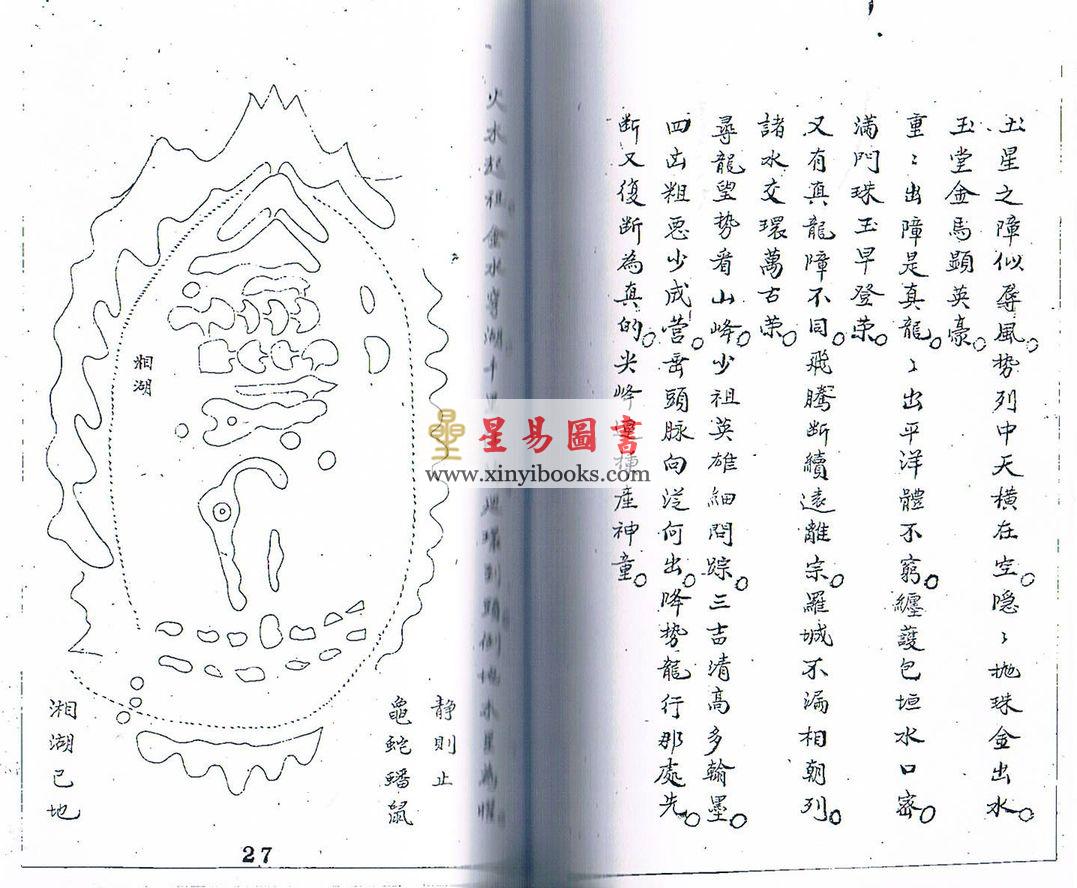 玉星之障似辱風。势列中天橫在空。隐〻抛珠金出水。
玉堂金馬顕英豪。
重〻出障是真龍。〻出平洋體不窮。纏護包垣水口密。
滿門珠玉早登荣。
又有真龍障不同。飛騰断續遠離宗。羅城不漏相朝列。
諸水交環萬古荣。
尋龍望势看山峰。少祖英雄细問踪。三吉清高多翰墨。
四凶粗恶少成营。岳頭脉向從何出。降势龍行那處先。
断又復断為真的。尖峰種産神童。
火木起祖金水穿湖十
環到頭倒地木星為
静則止
龜蛇蟠鼠
湘湖
湘湖巳地
27
星易圖書
www.xinyibooks.com